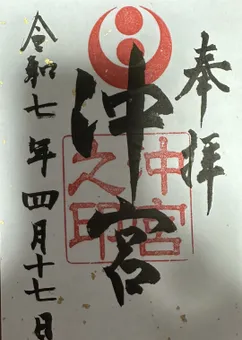 奉拝
沖宮
沖宮之印
令和七年四月十七日